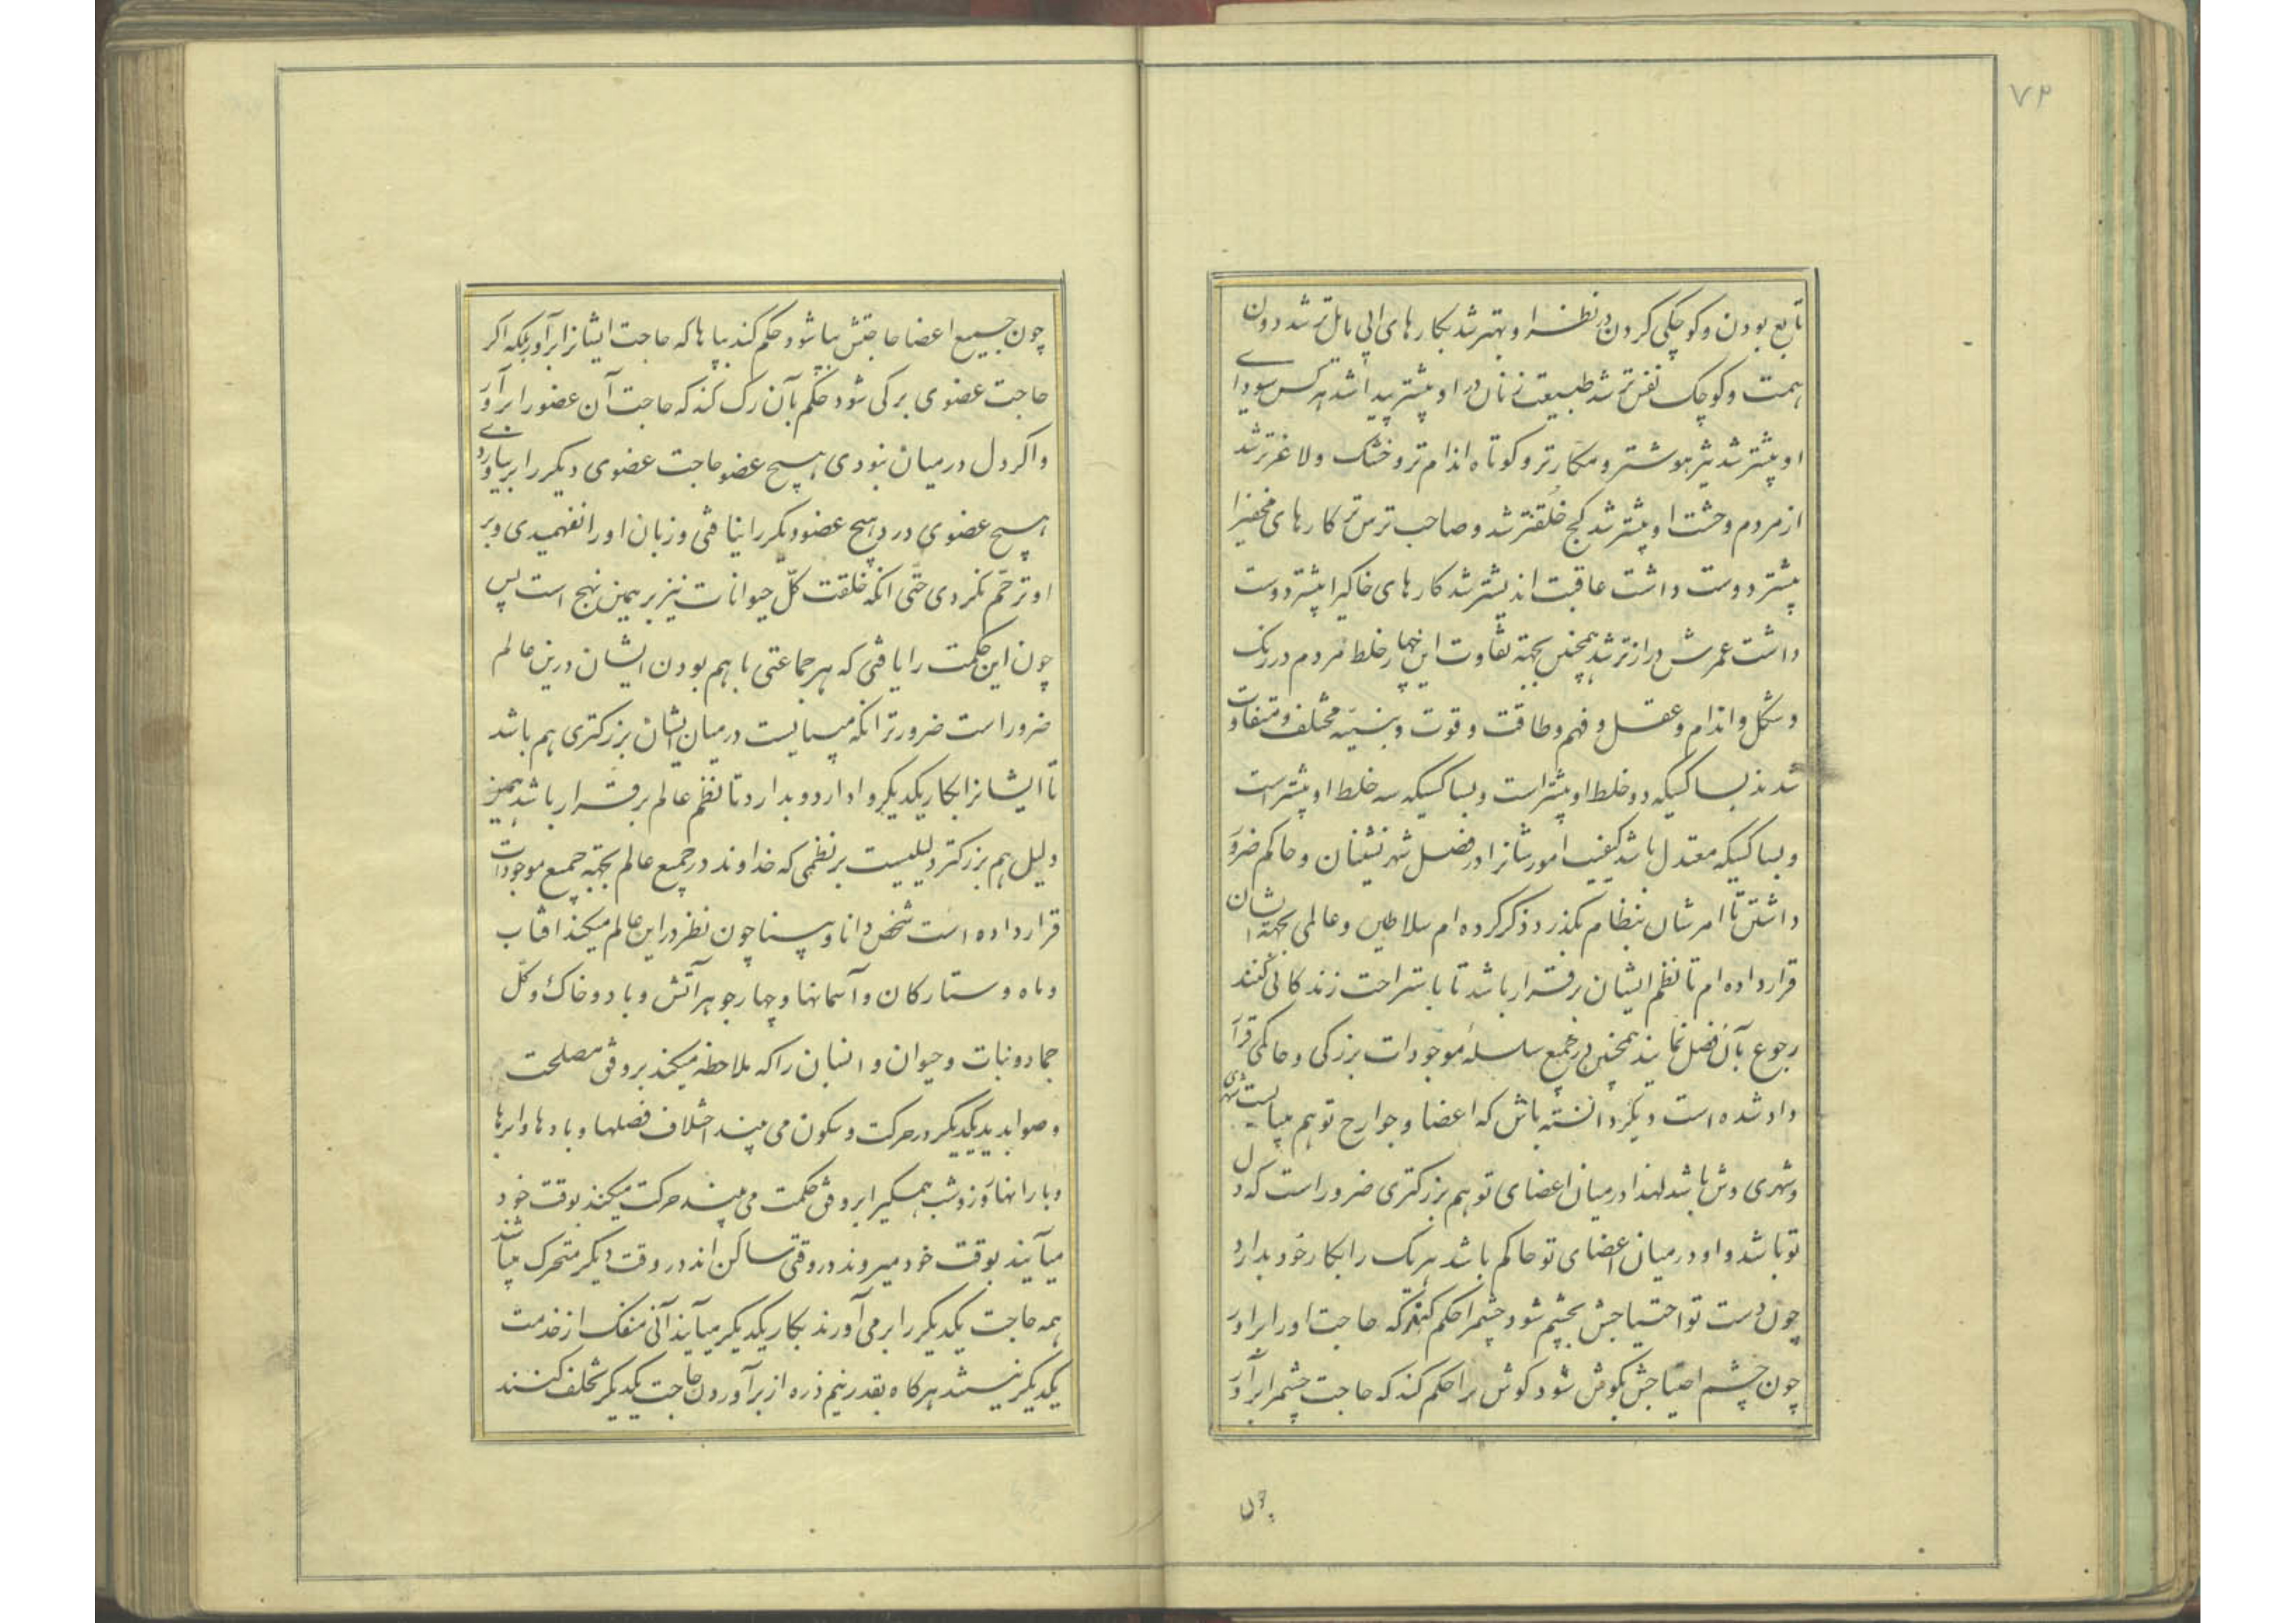 ۷۴
تابع بودن و کوچکی کردن در نظر او بهتر شد بکارهای ابی مایل تر شد دون
همت و کوچک نفس تر شد طبیعت زنان در او بیشتر پیدا شد هر کس سودای
او بیشتر شد تیز هوشتر و مکارتر و کوتاه اندام تر و خشک و لاغرتر شد
از مردم وحشت او بیشتر شد کج خلقتر شد و صاحب ترس تر کارهای مخفیرا
بیشتر دوست داشت عاقبت اندیشتر شد کارهای خاکیرا بیشتر دوست
داشت عمرش درازتر شد همچنین بجهة تفاوت این چهار خلط مردم در رنک
و شکل و اندام و عقل و فهم و طاقت و قوت و بنیّه مختلف و متفاوت
شدند بسا کسیکه دو خلط او بیشتر است و بسا کسیکه سه خلط او بیشتر است
و بسا کسیکه معتدل باشد کیفیت امورشانرا در فصل شهرنشینان و حاکم ضرور
داشتن تا امرشان بنظام بکذرد ذکر کرده ام سلاطین و عالمی بجهة ایشان
قرار داده ام تا نظم ایشان برقرار باشد تا باستراحت زندکانی کنند
رجوع بآن فصل نمایند همچنین در جمیع سلسلهٔ موجودات بزرکی و حاکمی قرار
داد شده است دیکر دانسته باش که اعضا و جوارح تو هم میبایست شهری
و شهری وش باشد لهذا در میان اعضای تو هم بزرکتری ضرور است که دل
تو باشد و او در میان اعضای تو حاکم باشد هر یک را بکار خود بدارد
چون دست تو احتیاجش بچشم شود چشمرا حکم کند که حاجت او را برآور
چون چشم احتیاجش بکوش شود کوش را حکم کند که حاجت چشمرا برآور
چون
چون جمیع اعضا حاجتش بپا شود حکم کند بپاها که حاجت ایشانرا برآور بلکه اکر
حاجت عضوی برکی شود حکم بآن رک کند که حاجت آن عضو را برآور
و اکر دل در میان نبودی هیچ عضو حاجت عضوی دیکر را برنیاوردی
هیچ عضوی درد هیچ عضو دیکر را نیافتی و زبان او را نفهمیدی و بر
او ترحّم نکردی حتّی انکه خلقت کلّ حیوانات نیز بر همین نهج است پس
چون این حکمت را یافتی که هر جماعتی با هم بودن ایشان درین عالم
ضرور است ضرورتر انکه میبایست در میان ایشان بزرکتری هم باشد
تا ایشانرا بکار یکدیکر وادارد و بدارد تا نظم عالم برقرار باشد همین
دلیل هم بزرکتر دلیلیست بر نظمی که خداوند در جمیع عالم بجهة جمیع موجودات
قرار داده است شخص دانا و بینا چون نظر در این عالم میکند افتاب
و ماه و ستارکان و آسمانها و چهار جوهر آتش و باد و خاک و کلّ
جماد و نبات و حیوان و انسان را که ملاحظه میکند بر وفق مصلحت
و صوابدید یکدیکر در حرکت و سکون می بیند اختلاف فصلها و بادها و ابرها
و بارانها و روز و شب همکیرا بر وفق حکمت می بیند حرکت میکنند بوقت خود
میآیند بوقت خود میروند در وقتی ساکن اند در وقت دیکر متحرک میباشند
همه حاجت یکدیکر را بر می آورند بکار یکدیکر میآیند آنی منفک از خدمت
یکدیکر نیستند هر کاه بقدر نیم ذره از برآوردن حاجت یکدیکر تخلف کنند